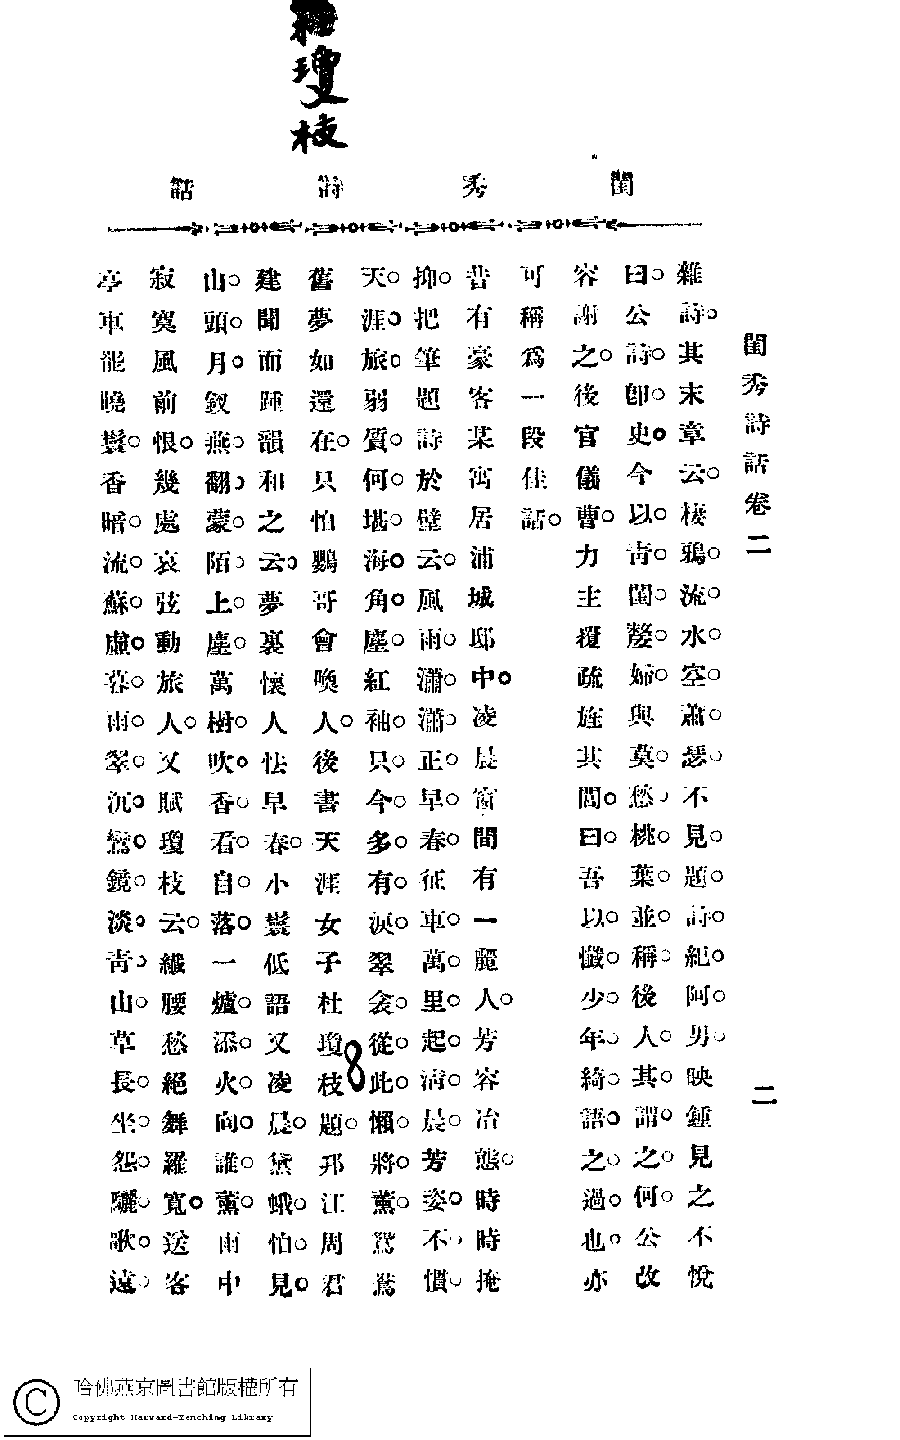 瓊枝
閨秀詩話
閨秀詩話卷二
二
雜詩。其末章云。棲鴉。流。水。空。蕭。瑟。不見。題。詩。紀。阿。男。映鍾見之不悅
曰。公詩。卽。史。今以。靑。閨。嫠。婦。與莫。愁。桃。葉。並。稱。後人。其。謂。之。何。公改
容謝之。後官儀曹。力主覆疏旌其閭。曰。吾以。懺。少。年。綺。語。之。過。也。亦
可稱爲一段佳話。
昔有豪客某寓居浦城邸中。凌晨窗間有一麗人。芳容冶態。時時掩
抑。把筆題詩於壁云。風雨。瀟。瀟。正。早。春。征車。萬。里。起。淸。晨。芳姿。不。慣。
天。涯。旅。弱質。何。堪。海。角。塵。紅袖。只。今。多。有。淚。翠衾。從。此。懶。將。薰。鴛鴦
舊夢如還在。只怕鸚哥會喚人。後書天涯女子杜瓊枝題。邘江周君
建聞而踵韻和之云。夢裏懷人怯早春。小鬟低語又凌晨。黛蛾。怕。見。
山。頭。月。釵燕。翻。蒙。陌。上。塵。萬樹。吹。香。君。自。落。一爐。添。火。向。誰。薰。雨中
寂寞風前恨。幾處哀弦動旅人。又賦瓊枝云。纖腰愁絕舞羅寬。送客
亭車能曉鬟。香暗。流。蘇。虛。暮。雨。翠。沉。鸞。鏡。淡。靑。山。草長。坐。怨。驪。歌。遠。
8
哈佛燕京圖書館版權所有
Copyright Harvard-Yenching Library